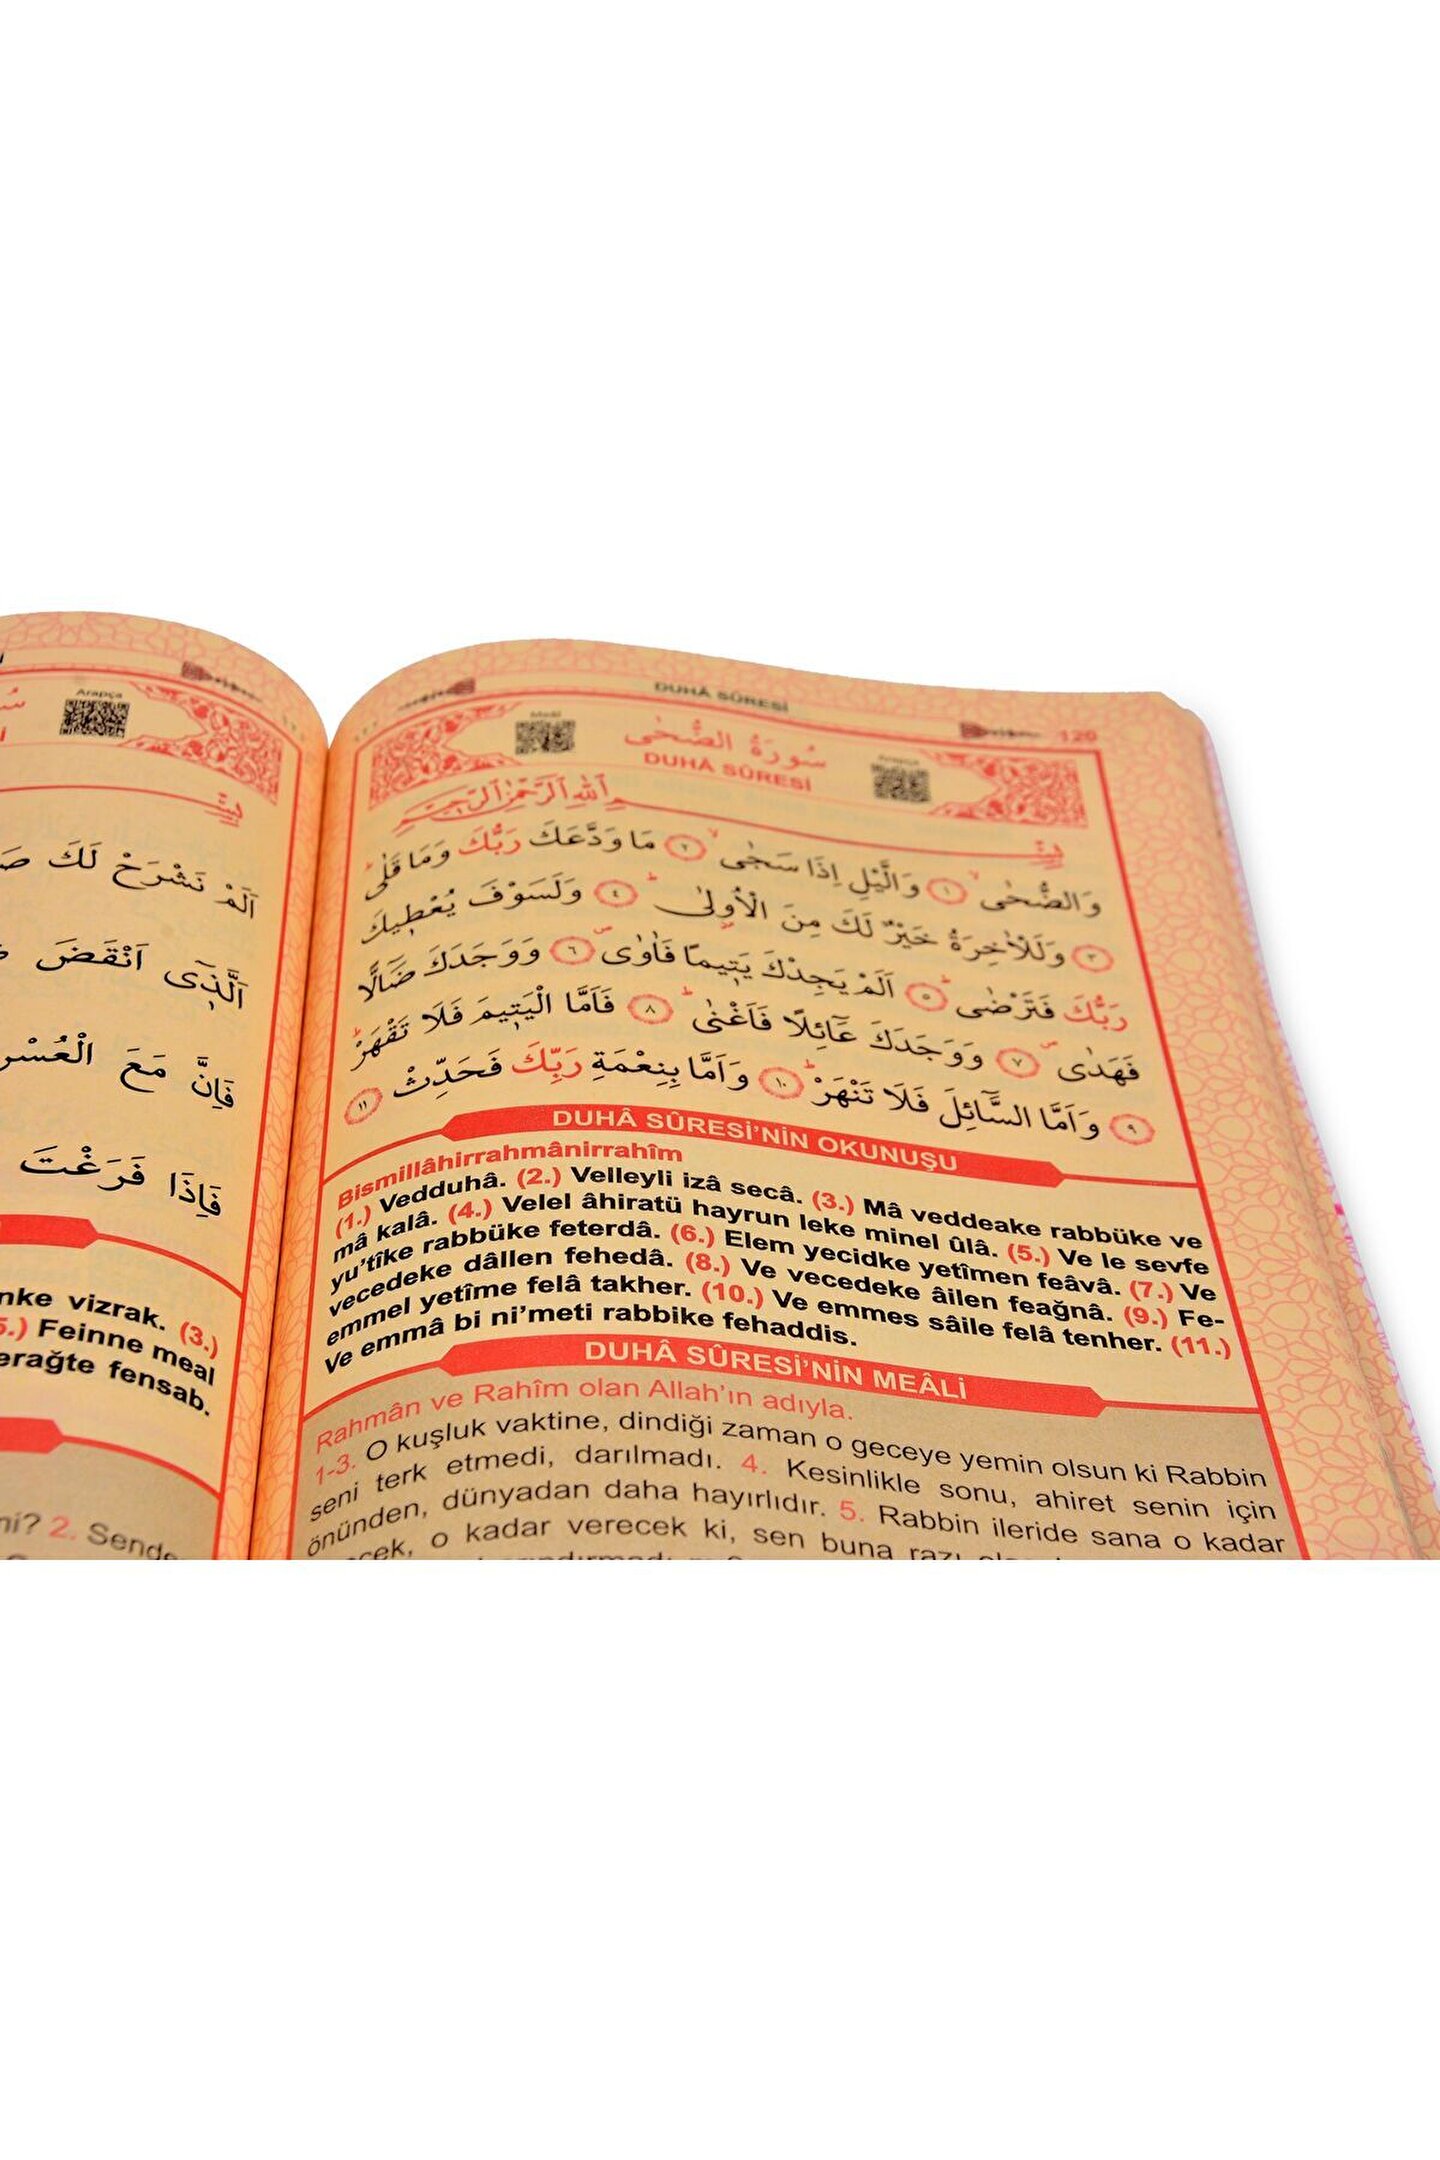 Arapça
اَلَمْ نَشْرَحْ لَكَ
اَلَّذٖٓى اَنْقَضَ
فَاِنَّ مَعَ الْعُسْرِ
فَاِذَا فَرَغْتَ
vizrak. (3.)
Feinne meal
fensab.
2. Sende
DUHÂ SÛRESİ
120
Meâl
سُورَةُ الضُّحٰى
Arapça
DUHÂ SÛRESİ
بِسْمِ اللّٰهِ الرَّحْمٰنِ الرَّحٖيمِ
وَالضُّحٰىۙ ﴿١﴾ وَالَّيْلِ اِذَا سَجٰىۙ ﴿٢﴾ مَا وَدَّعَكَ رَبُّكَ وَمَا قَلٰىۜ
﴿٣﴾ وَلَلْاٰخِرَةُ خَيْرٌ لَكَ مِنَ الْاُو۫لٰىۜ ﴿٤﴾ وَلَسَوْفَ يُعْطٖيكَ
رَبُّكَ فَتَرْضٰىۜ ﴿٥﴾ اَلَمْ يَجِدْكَ يَتٖيمًا فَاٰوٰىۖ ﴿٦﴾ وَوَجَدَكَ ضَٓالًّا
فَهَدٰىۖ ﴿٧﴾ وَوَجَدَكَ عَٓائِلًا فَاَغْنٰىۜ ﴿٨﴾ فَاَمَّا الْيَتٖيمَ فَلَا تَقْهَرْۜ
﴿٩﴾ وَاَمَّا السَّٓائِلَ فَلَا تَنْهَرْۜ ﴿١٠﴾ وَاَمَّا بِنِعْمَةِ رَبِّكَ فَحَدِّثْ ﴿١١﴾
DUHÂ SÛRESİ'NİN OKUNUŞU
Bismillâhirrahmânirrahîm
(1.) Vedduhâ. (2.) Velleyli izâ secâ. (3.) Mâ veddeake rabbüke ve
mâ kalâ. (4.) Velel âhiratü hayrun leke minel ûlâ. (5.) Ve le sevfe
yu'tîke rabbüke feterdâ. (6.) Elem yecidke yetîmen feâvâ. (7.) Ve
vecedeke dâllen fehedâ. (8.) Ve vecedeke âilen feağnâ. (9.) Fe-
emmel yetîme felâ takher. (10.) Ve emmes sâile felâ tenher. (11.)
Ve emmâ bi ni'meti rabbike fehaddis.
DUHÂ SÛRESİ'NİN MEÂLİ
Rahmân ve Rahîm olan Allah'ın adıyla.
1-3. O kuşluk vaktine, dindiği zaman o geceye yemin olsun ki Rabbin
seni terk etmedi, darılmadı. 4. Kesinlikle sonu, ahiret senin için
önünden, dünyadan daha hayırlıdır. 5. Rabbin ileride sana o kadar
o kadar verecek ki, sen buna razı